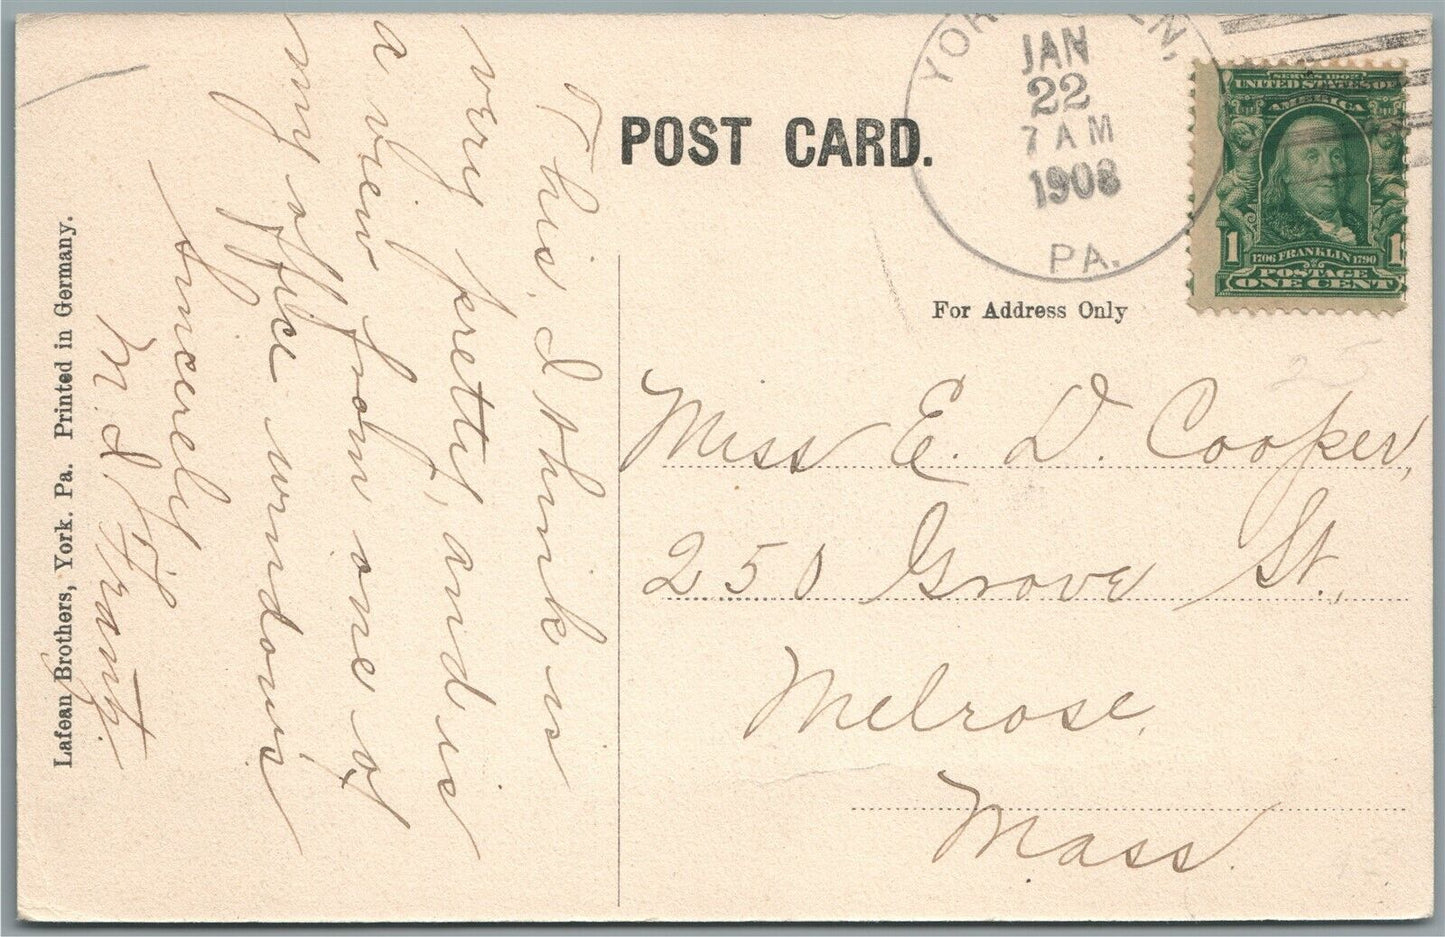 POST CARD.
YOR EN,
JAN
22
7 AM
1908
PA.
SERIES 1902
UNITED STATES OF
AMERICA
1 1
1706 FRANKLIN 1790
POSTAGE
ONE CENT
For Address Only
25
Miss E. D. Cooper,
250 Grove St.,
Melrose,
Mass.
This, I think is
very pretty, and is
a view from one of
my office windows
Sincerely
Lafean Brothers, York. Pa. Printed in Germany.